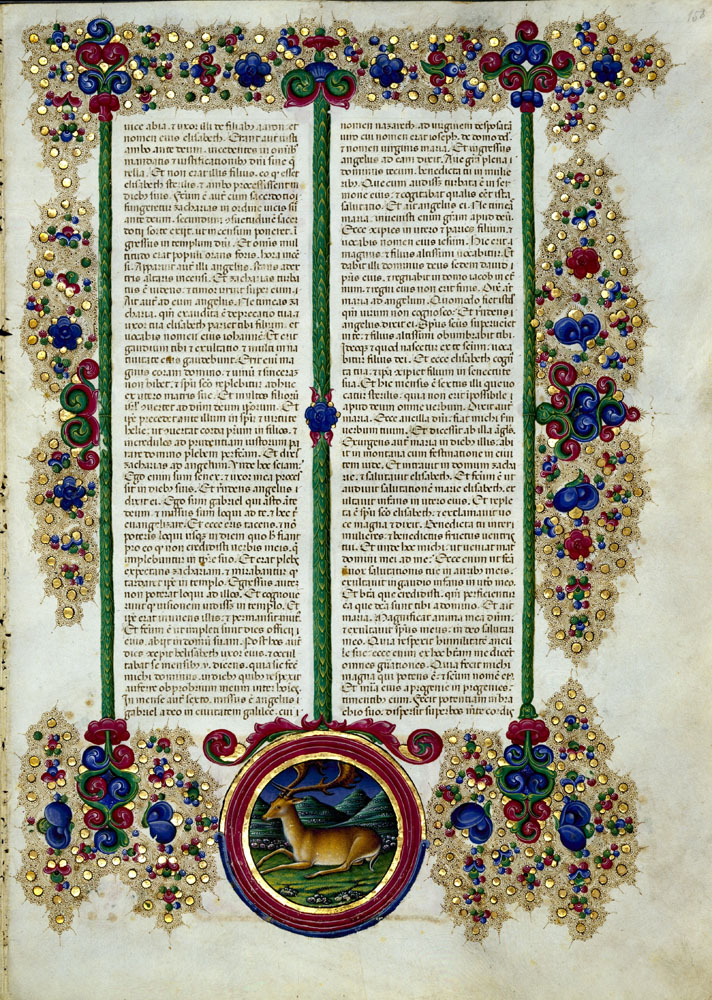 uice abia, & uxor illi de filiabus aaron: et
nomen eius elisabeth. Erant aut iusti
ambo ante deum, incedentes in omīb
mandatis & iustificationibus dñi sine q
rella. Et non erat illis filius, eo q esset
elisabeth sterilis, & ambo processissent in
diebus suis. Factum ē aut cum sacerdotio
fungeretur zacharias in ordine uicis su
ante deum, secundum consuetudinem sacer
dotij sorte exijt, ut incensum poneret, i
gressus in templum dñi. Et omnis multi
tudo erat populi orans foris, hora incē
si. Apparuit aut illi angelus, stans a dex
tris altaris incensi. Et zacharias turba
tus ē uidens, & timor irruit super eum.
Ait aut ad eum angelus. Ne timeas za
charia, qm exaudita ē deprecatio tua, &
uxor tua elisabeth pariet tibi filium, et
uocabis nomen eius iohannē. Et erit
gaudium tibi & exultatio, & multi in na
tiuitate eius gaudebunt. Erit enī ma
gnus coram domino, & uinum & siceram
non bibet, & spū scō replebitur adhuc
ex utero matris sue. Et multos filiorū
isrł conuertet ad dñm deum ipsorum. Et
ipe precedet ante illum in spū & uirtute
helie, ut conuertat corda patrum in filios, &
incredulos ad prudentiam iustorum, pa
rare domino plebem perfectā. Et dixit
zacharias ad angelum. Vnde hoc sciam?
Ego enim sum senex, & uxor mea process
sit in diebus suis. Et rñdens angelus i
dixit ei. Ego sum gabriel qui asto ante
deum, & missus sum loqui ad te, & hec t
euangelizare. Et ecce eris tacens, & nō
poteris loqui usq in diem quo hec fiant,
pro eo q non credidisti uerbis meis, q
implebuntur in tpre suo. Et erat plebs
expectans zachariam, & mirabantur q
tardaret ipe in templo. Egressus aut
non poterat loqui ad illos. Et cognoue
runt q uisionem uidisset in templo. Et
ipe erat innuens illis, & permansit mutus.
Et factum ē ut impleti sunt dies officij
eius, abijt in domū suam. Post hos aut
dies concepit helisabeth uxor eius, & occul
tabat se mensibus v. dicens, quia sic fec
michi dominus, in diebus quibus respexit
auferre obprobrium meum inter hoies.
In mense aut sexto, missus ē angelus
gabriel a deo in ciuitatem galilee, cui
nomen nazareth, ad uirginem desponsatā
uiro cui nomen erat ioseph, de domo dd,
& nomen uirginis maria. Et ingressus
angelus ad eam dixit. Aue gratia plena
dominus tecum, benedicta tu in mulie
ribus. Que cum audisset turbata ē in ser
mone eius, & cogitabat qualis eēt ista
salutatio. Et ait angelus ei. Ne timeas
maria, inuenisti enim grām apud deū.
Ecce concipies in utero & paries filium, &
uocabis nomen eius iesum. Hic erit
magnus, & filius altissimi uocabitur. Et
dabit illi dominus deus sedem dauid
pris eius, & regnabit in domo iacob in et
num, & regni eius non erit finis. Dixit aut
maria ad angelum. Quomodo fiet istud
qm uirum non cognosco? Et rñdens
angelus dixit ei. Spūs scūs superueniet
in te, & uirtus altissimi obumbrabit tibi.
Ideoq & quod nascetur ex te scūm, uoca
bitur filius dei. Et ecce elisabeth cogna
ta tua, & ipā concepit filium in senectute
sua. Et hic mensis ē sextus illi que uo
catur sterilis, quia non erit ipossibile
apud deum omne uerbum. Dixit aut
maria. Ecce ancilla dñi, fiat michi secundum
uerbum tuum. Et discessit ab illa angls.
Exurgens aut maria in diebus illis, ab
ijt in montana cum festinatione in ciui
tatem iude. Et intrauit in domum zacha
rie, & salutauit elisabeth. Et factum ē ut
audiuit salutationē marie elisabeth, ex
ultauit infans in utero eius. Et reple
ta ē spū scō elisabeth, & exclamauit uo
ce magna & dixit. Benedicta tu inter
mulieres, & benedictus fructus uentris
tui. Et unde hoc michi, ut ueniat mat
domini mei ad me? Ecce enim ut facta est
uox salutationis tue in auribus meis,
exultauit in gaudio infans in utero meo.
Et beata que credidisti, qm perficientur
ea que dicta sunt tibi a domino. Et ait
maria. Magnificat anima mea dñm,
& exultauit spūs meus, in deo salutari
meo. Quia respexit humilitatē ancil
le sue, ecce enim ex hoc beatam me dicent
omnes generationes. Quia fecit michi
magna qui potens ē, & scūm nomen ei.
Et misericordia eius a progenie in progenies,
timentibus eum. Fecit potentiam in bra
chio suo, dispersit superbos mente cordis